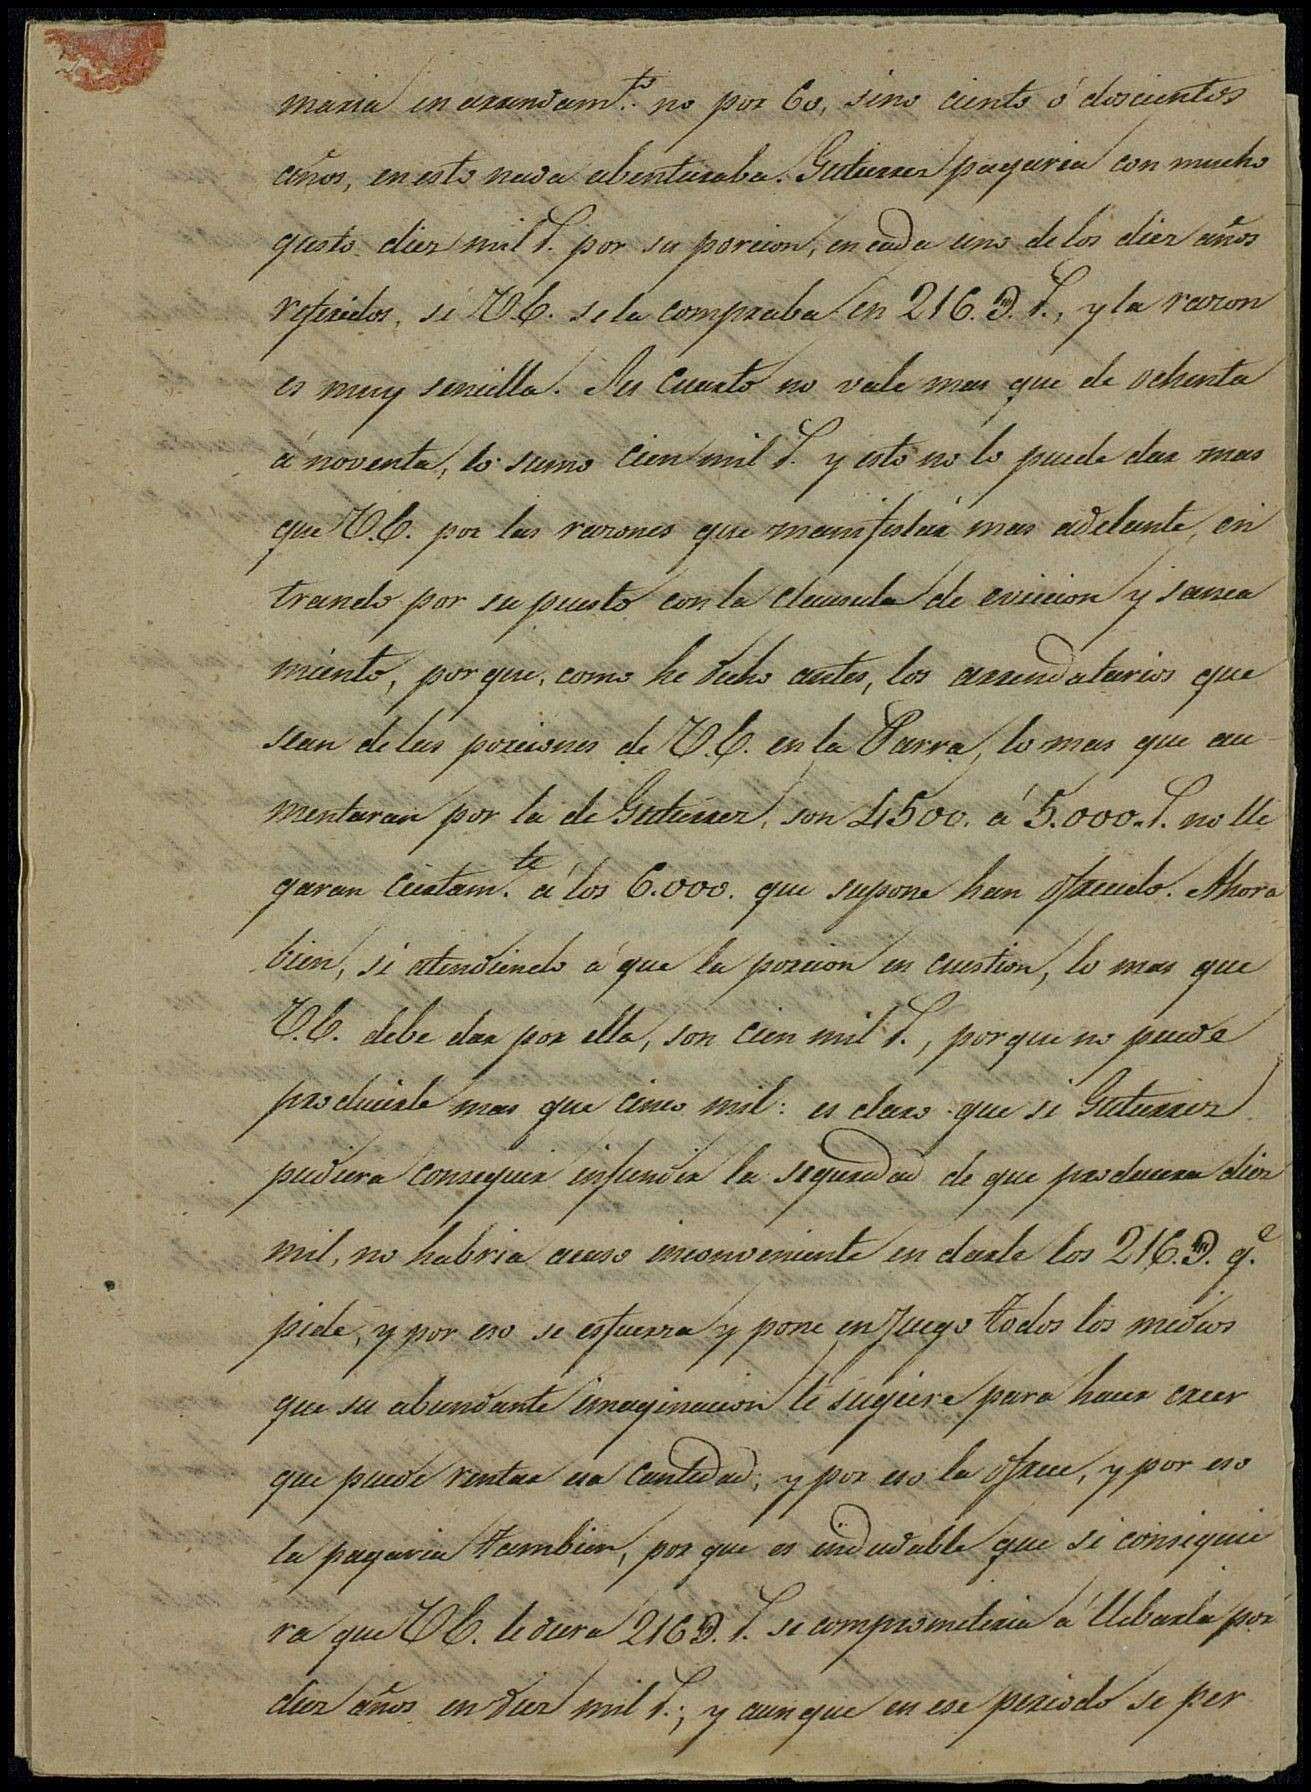 maria en arrendam.to no por 60, sino ciento ó doscientos
años, en esto nada abenturaba. Gutierrez pagaria con mucho
gusto diez mil r. por su porcion, en cada uno de los diez años
referidos, si V.E. se la compraba en 216.D. r., y la razon
es muy sencilla. Su cuarto no vale mas que de ochenta
á noventa, lo sumo cien mil r. y esto no lo puede dar mas
que V.E. por las razones que manifestaré mas adelante, en
trando por supuesto con la clausula de eviccion y sanea
miento, porque, como he dicho antes, los arrendatarios que
sean de las porciones de V.E. en la Parra, lo mas que au
mentaran por la de Gutierrez, son 4500. á 5.000. r. no lle
garan ciertam.te á los 6.000. que supone han ofrecido. Ahora
bien, si atendiendo á que la porcion en cuestion, lo mas que
V.E. debe dar por ella, son cien mil r., porque no puede
producirle mas que cinco mil: es claro que si Gutierrez
pudiera conseguir infundir la seguridad de que produzca diez
mil, no habria acaso inconveniente en darle los 216.D. q.e
pide, y por eso se esfuerza y pone en juego todos los medios
que su abundante imaginacion le sugiere para hacer creer
que puede rentar esa cantidad; y por eso la ofrece, y por eso
la pagaria tambien, por que es indudable que si consiguie
ra que V.E. le diera 216D. r. se comprometeria á llebarla por
diez años en diez mil r.; y aunque en ese periodo se per